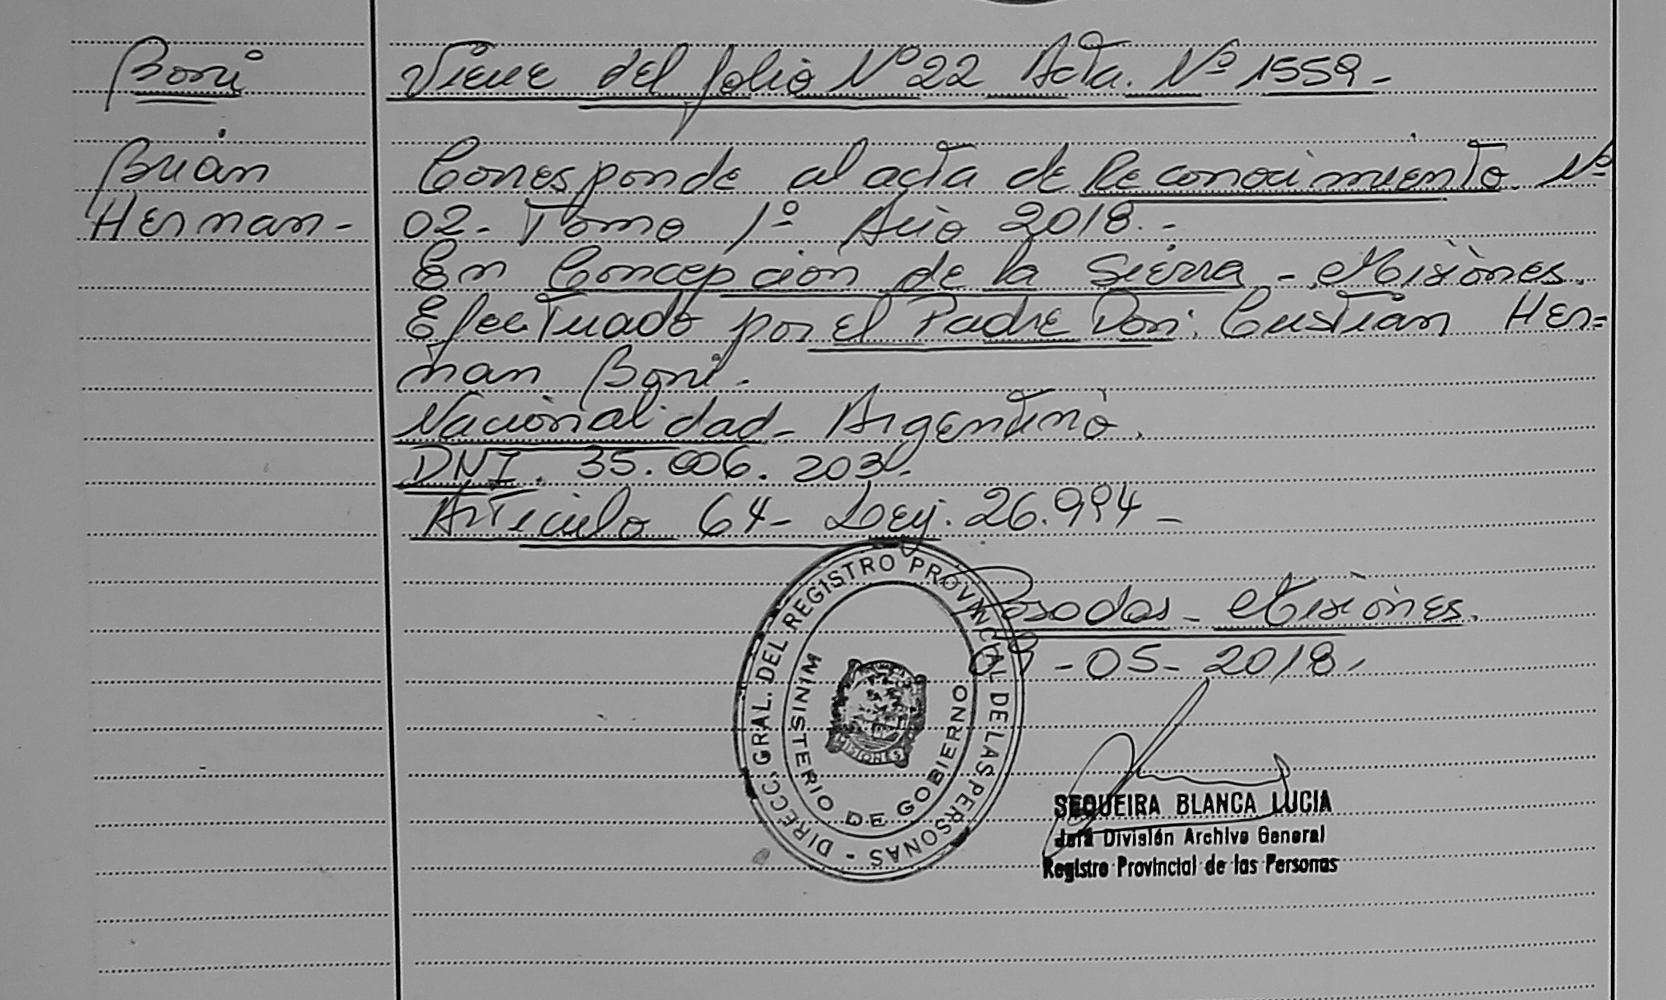 Boni
Viene del folio Nº 22 Acta. Nº 1559-
Brian
Hernan-
Corresponde al acta de Reconocimiento Nº
02- Tomo 1º Año 2018.-
En Concepcion de la Sierra - Misiones.
Efectuado por el Padre Don: Cristian Her=
nan Boni.
Nacionalidad- Argentino.
DNI. 35.006.203-
Articulo 64- Ley. 26.994-
Posadas- Misiones.
-05-2018.
DIRECC. GRAL. DEL REGISTRO PROVINCIAL DE LAS PERSONAS -
MINISTERIO DE GOBIERNO
MISIONES
SEQUEIRA BLANCA LUCIA
Jefa División Archivo General
Registro Provincial de las Personas